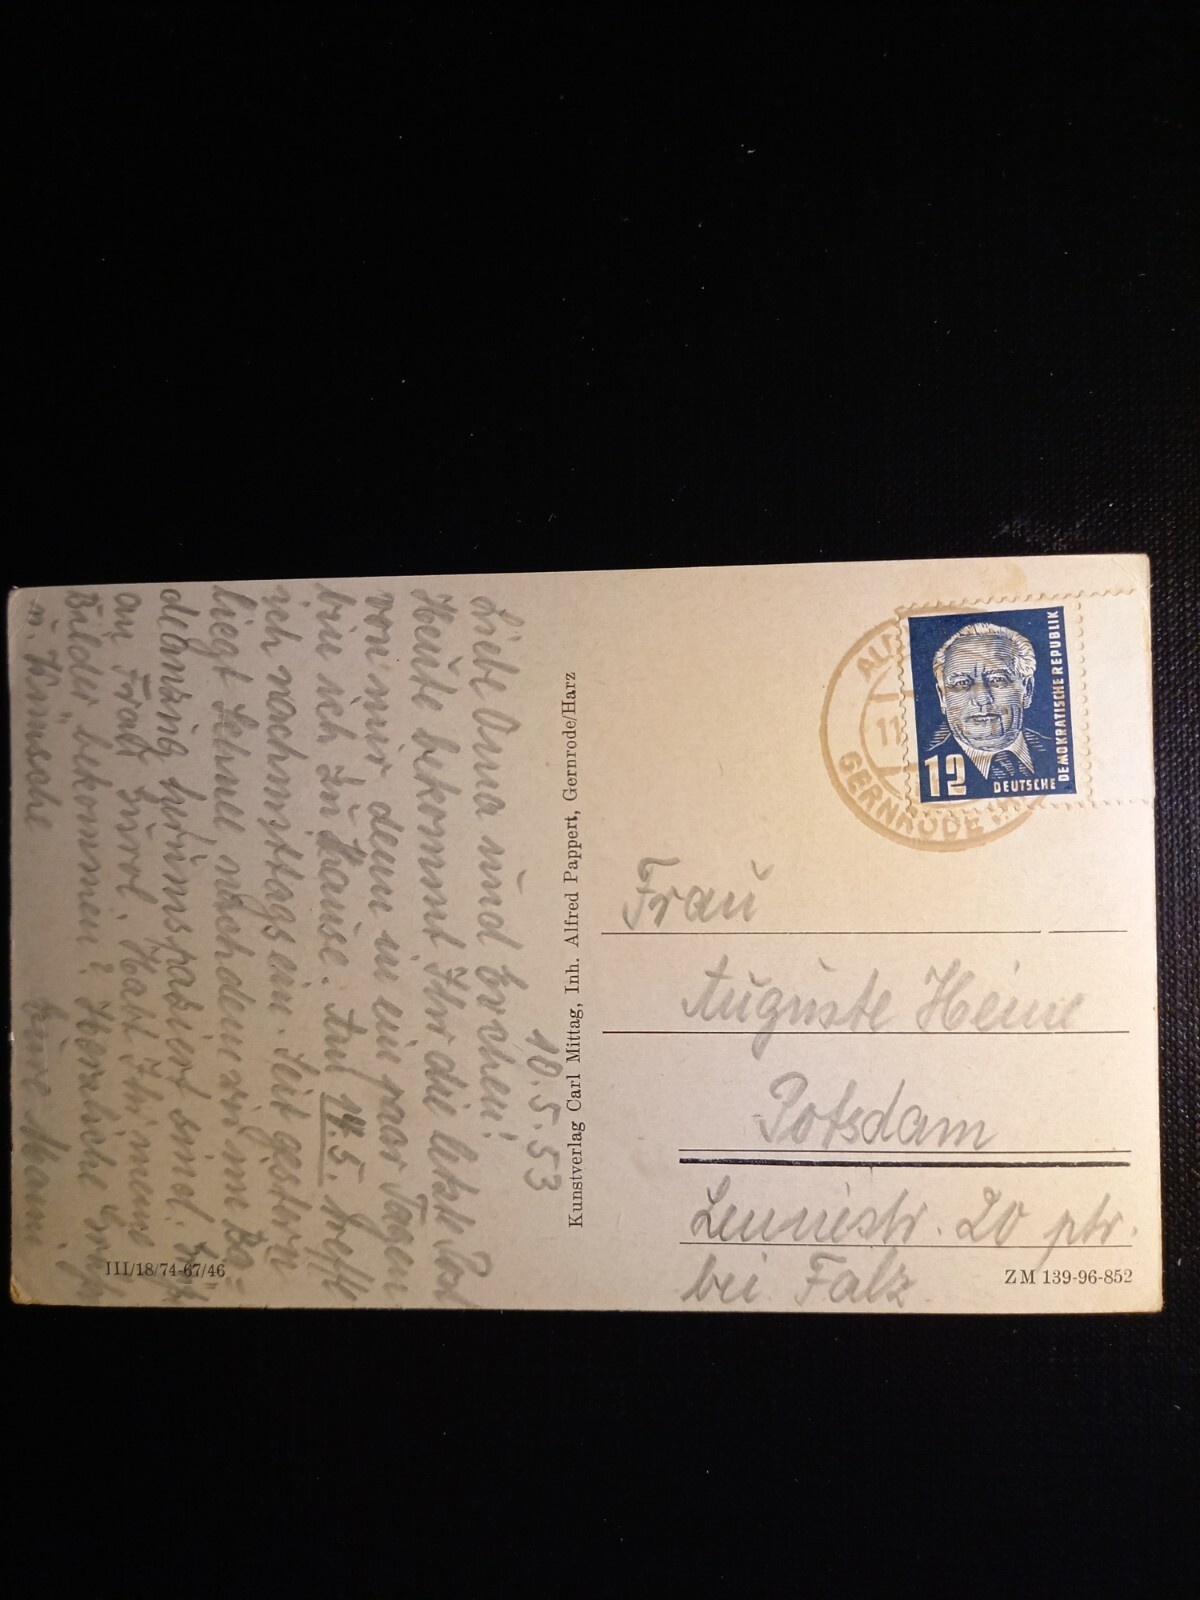 10.5.53
Liebe Oma und Evchen!
Heute bekommt Ihr die letzte Post
von mir, denn in ein paar Tagen
bin ich zu Hause. Am 14.5. treffe
ich nachmittags ein. Seit gestern
liegt Schnee, nachdem wir im Ba-
deanzug rumspaziert sind.
an Frau Zürrl. Habt Ihr meine
Bilder bekommen? Herzliche Grüße
u. Küsse
Eure
Kunstverlag Carl Mittag, Inh. Alfred Pappert, Gernrode/Harz
III/18/74-67/46
12
DEUTSCHE
DEMOKRATISCHE REPUBLIK
11
GERNRODE
Frau
Auguste Heine
Potsdam
Lennéstr. 20 ptr.
bei Falz
ZM 139-96-852